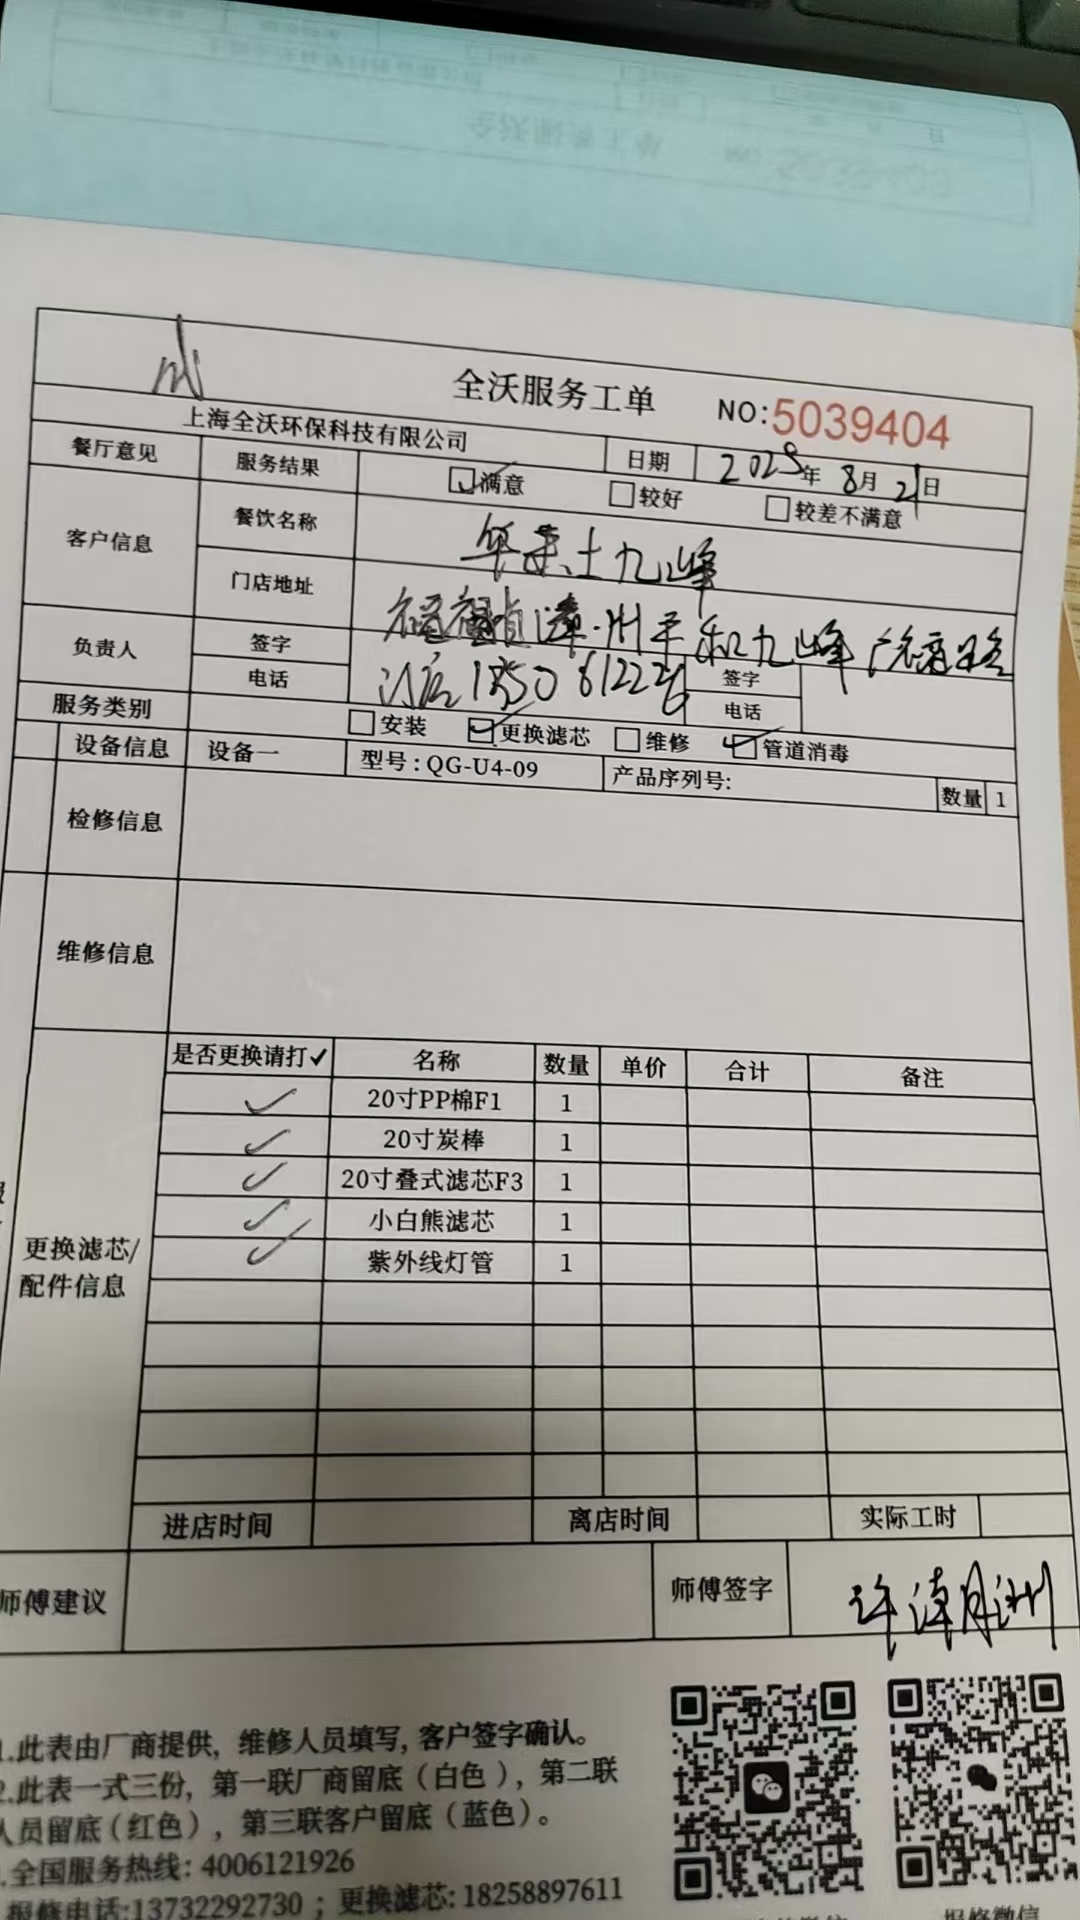 全沃服务工单 NO:5039404
上海全沃环保科技有限公司 日期 2025年8月21日
餐厅意见 服务结果 ☑满意 □较好 □较差不满意
客户信息 餐饮名称 华莱士九峰
门店地址 福建省漳州平和九峰
负责人 签字 签字
电话 电话
服务类别 □安装 ☑更换滤芯 □维修 ☑管道消毒
设备信息 设备一 型号:QG-U4-09 产品序列号: 数量 1
检修信息
维修信息
更换滤芯/配件信息
是否更换请打✓ 名称 数量 单价 合计 备注
✓ 20寸PP棉F1 1
✓ 20寸炭棒 1
✓ 20寸叠式滤芯F3 1
✓ 小白熊滤芯 1
✓ 紫外线灯管 1
进店时间 离店时间 实际工时
师傅建议 师傅签字
1.此表由厂商提供, 维修人员填写, 客户签字确认。
2.此表一式三份, 第一联厂商留底(白色), 第二联
人员留底(红色), 第三联客户留底(蓝色)。
全国服务热线: 4006121926
报修电话:13732292730 ; 更换滤芯: 18258897611
报修微信